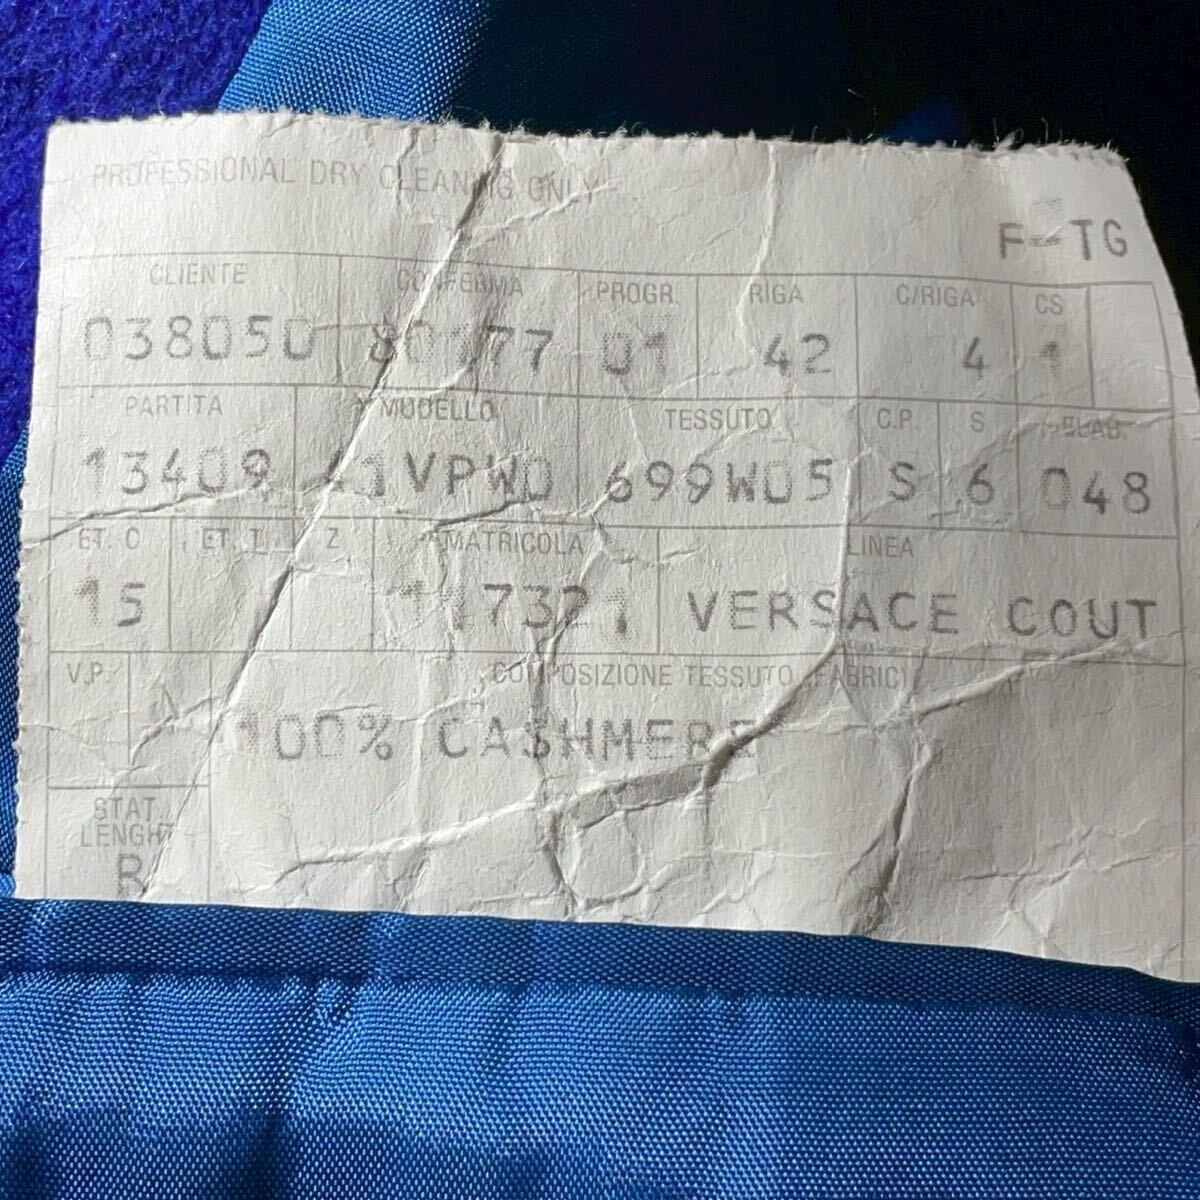 PROFESSIONAL DRY CLEANING ONLY
F-TG
CLIENTE CONFERMA PROGR. RIGA C/RIGA CS
038050 80177 01 42 4 1
PARTITA MODELLO TESSUTO C.P. S
13409 41VPW0 699W05 S 6 048
ET. C ET. T Z MATRICOLA LINEA
15 117321 VERSACE COUT
V.P. COMPOSIZIONE TESSUTO (FABRIC)
100% CASHMERE
STAT.
LENGHT
R